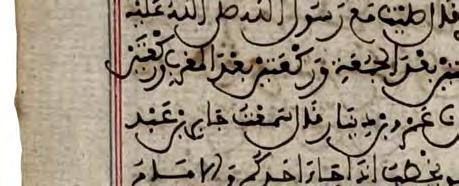 قال صليت مع رسول الله صلى الله عليه
بعد الجمعة وركعتين بعد المغرب وركعتين
عمرو بن دينار قال سمعت جابر بن عبد
يخطب اذا جاء احدكم والامام